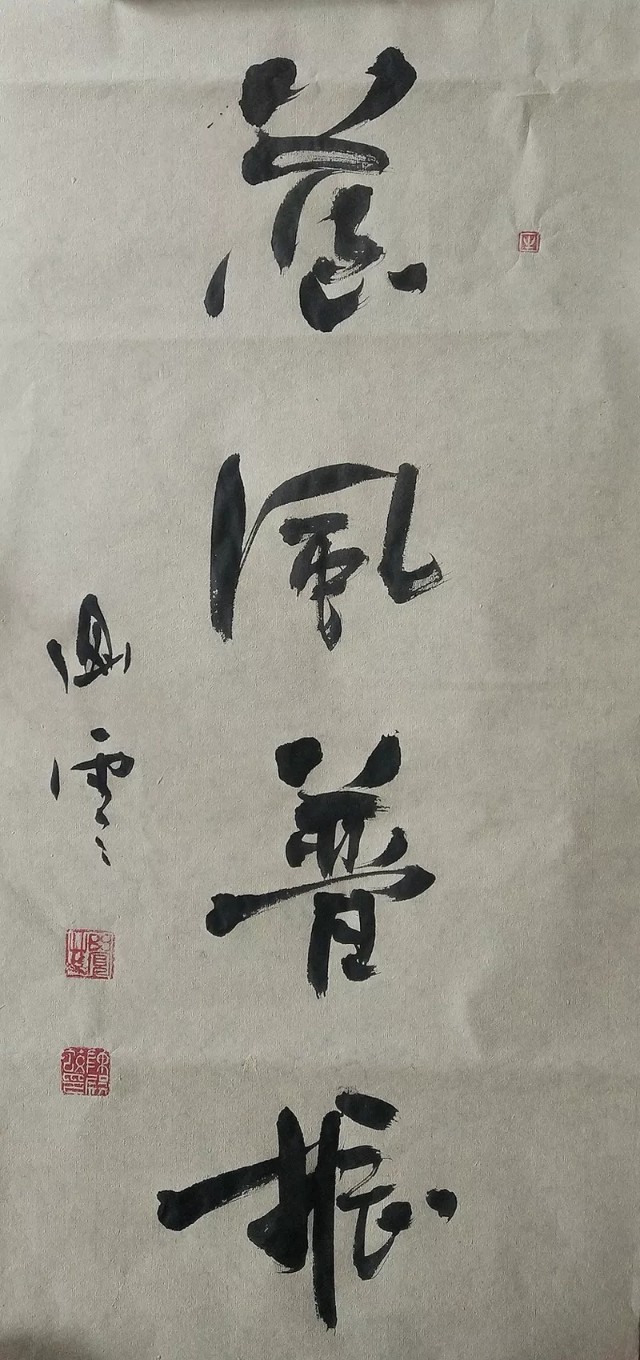 慈風普振
雲